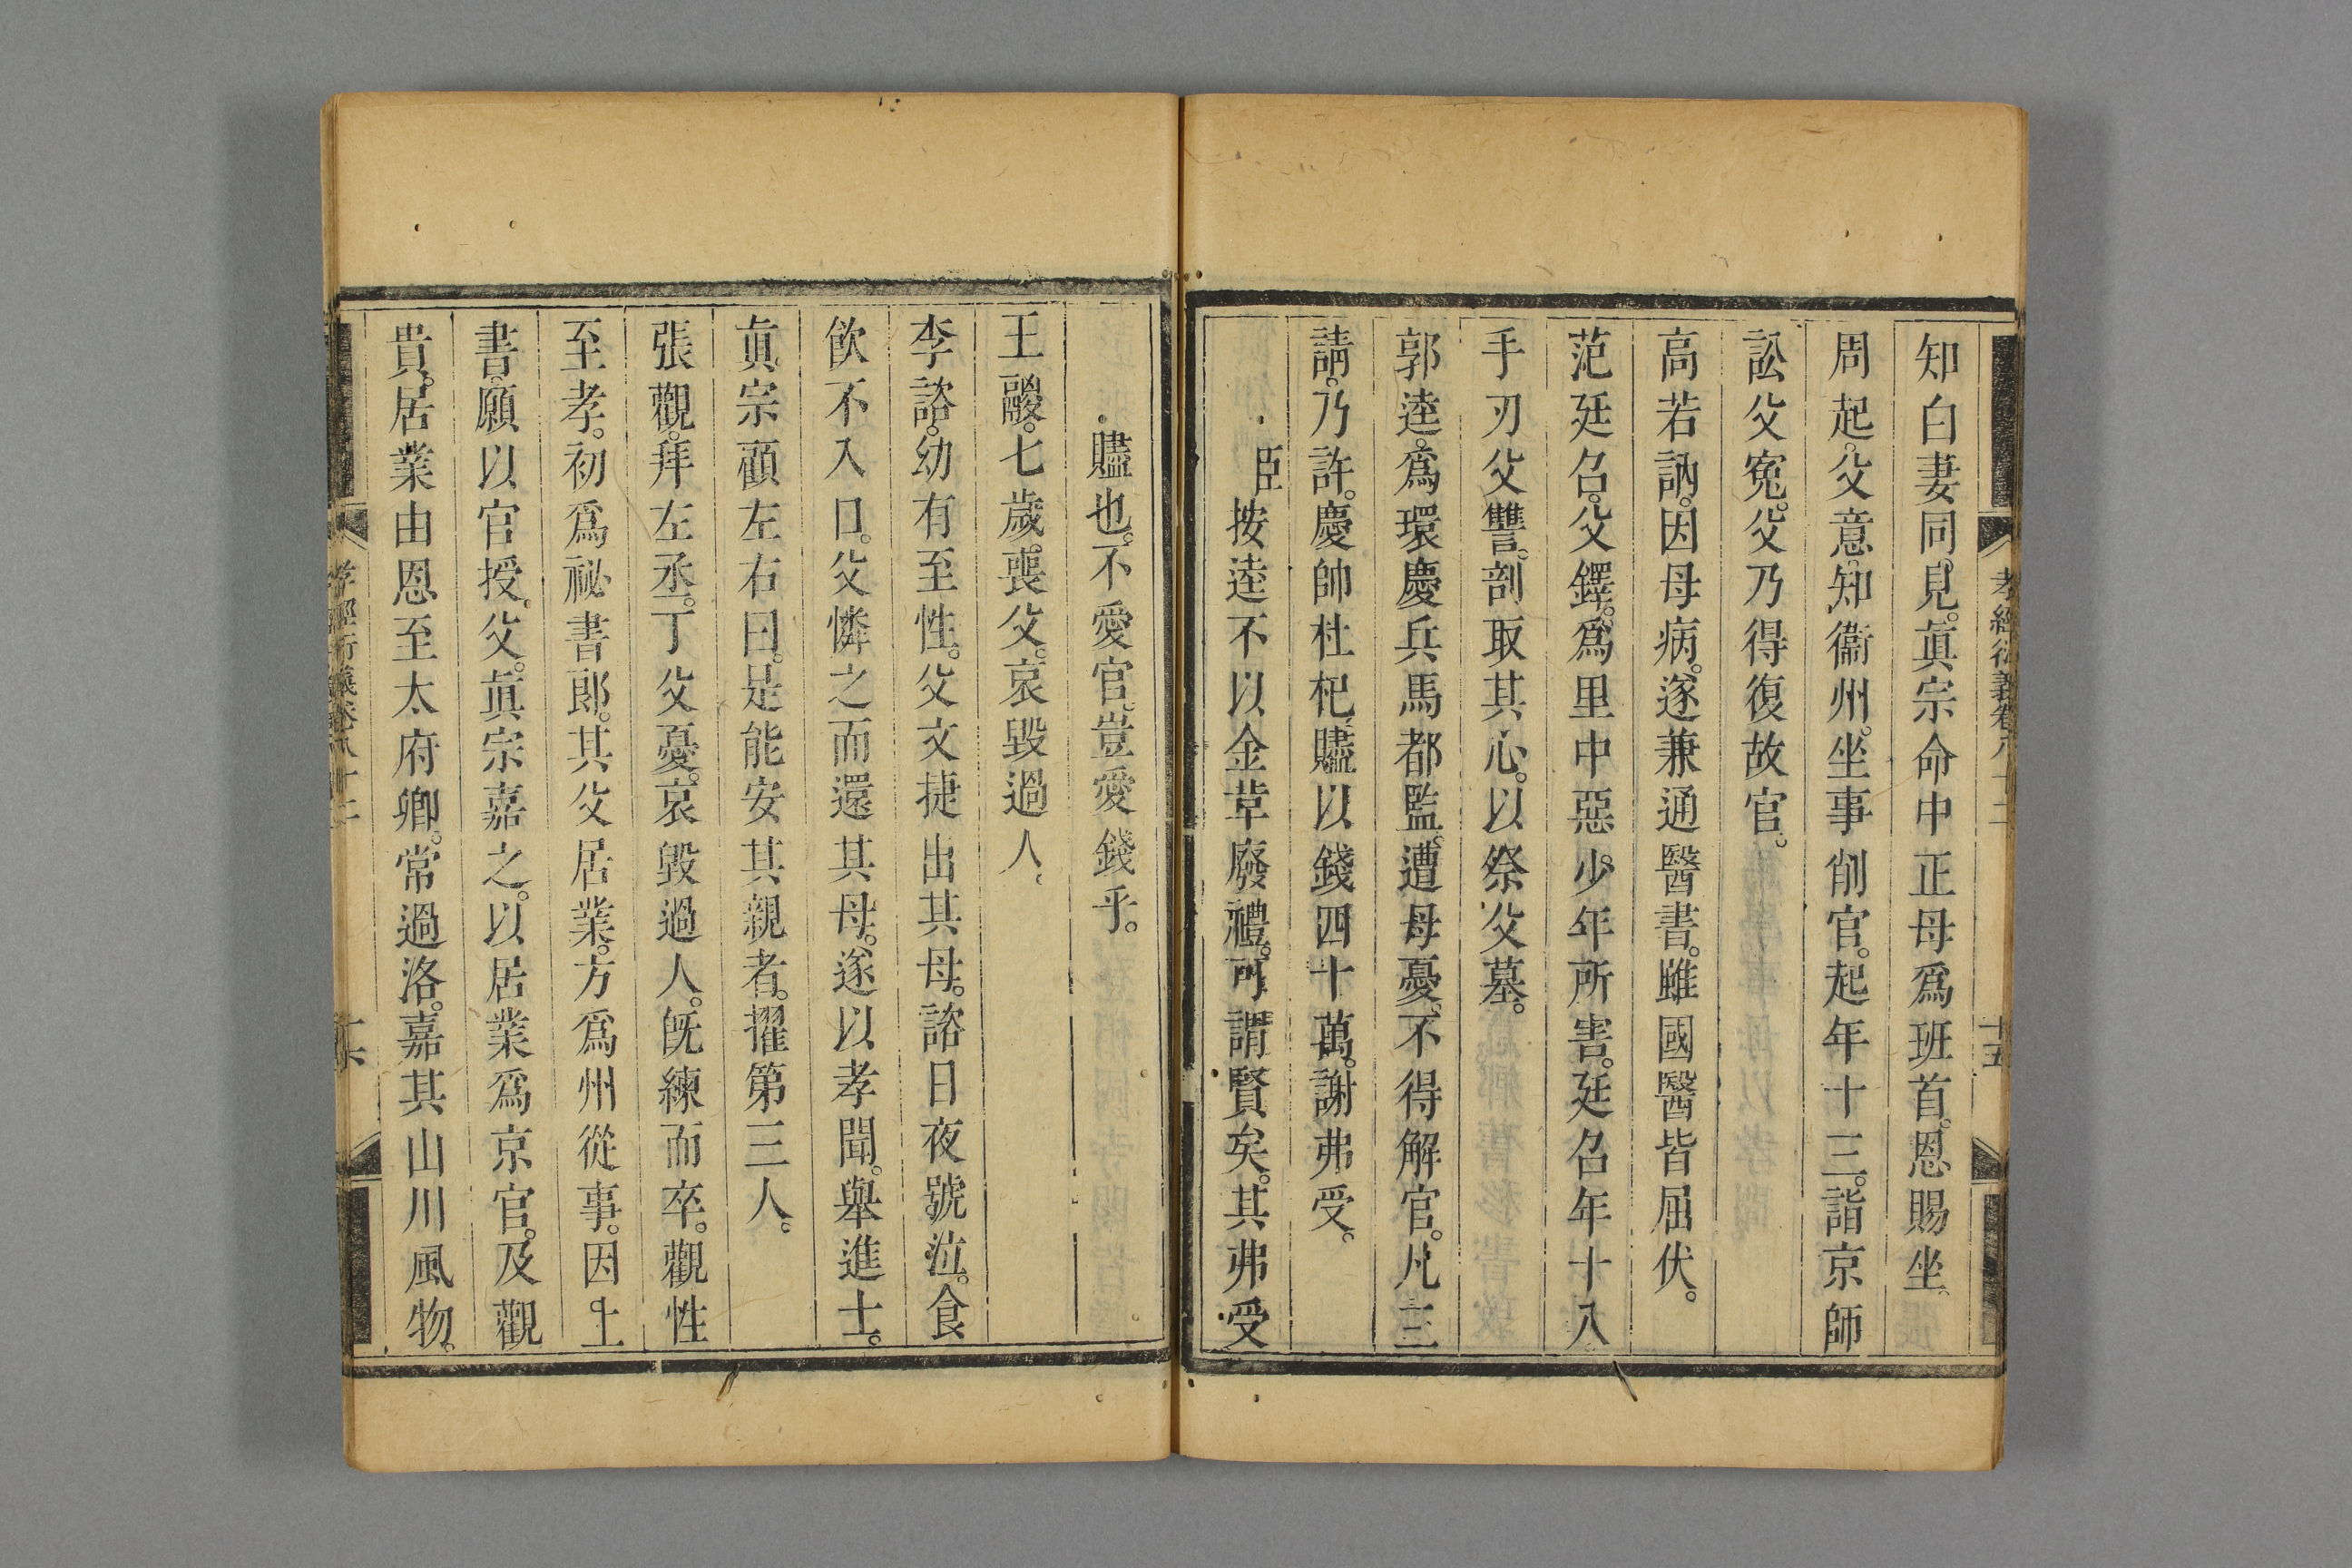 孝經衍義卷八十二 十五
知白妻同見。眞宗命中正母爲班首。恩賜坐。
周起。父意。知衞州。坐事削官。起年十三。詣京師
訟父寃。父乃得復故官。
高若訥。因母病。遂兼通醫書。雖國醫皆屈伏。
范廷召。父鐸。爲里中惡少年所害。廷召年十八
手刃父讐。剖取其心。以祭父墓。
郭逵。爲環慶兵馬都監。遭母憂。不得解官。凡三
請。乃許。慶帥杜杞。贐以錢四十萬。謝弗受。
臣按逵不以金革廢禮。可謂賢矣。其弗受
贐也。不愛官。豈愛錢乎。
王鬷。七歲。喪父。哀毀過人。
李諮。幼有至性。父文捷出其母。諮日夜號泣。食
飲不入口。父憐之而還其母。遂以孝聞。舉進士。
眞宗顧左右曰。是能安其親者。擢第三人。
張觀。拜左丞。丁父憂。哀毀過人。旣練而卒。觀性
至孝。初爲祕書郎。其父居業。方爲州從事。因上
書。願以官授父。眞宗嘉之。以居業爲京官。及觀
貴。居業由恩至太府卿。常過洛。嘉其山川風物。
孝經衍義卷八十二 十六